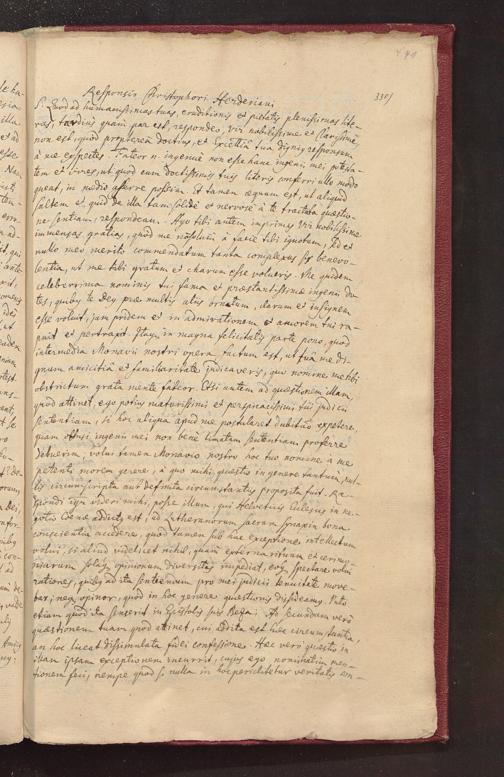 330)
Responsio Christophori Herdesiani
S. Quod ad humanissimas tuas, eruditionis et pietatis plenissimas lite-
ras, tardius quam par est, respondeo, vir nobilissime et Clarissime,
non est, quod propterea doctius, et Excellentia tua dignum responsum
à me exspectes. Fateor n. ingenue non esse hanc ingenii mei potesta-
tem et vires, ut quod cum doctissimis tuis literis conferri ullo modo
queat, in medio afferre possim. Et tamen æquum est, ut aliquid
saltem et quid de illa tam solide et nervose à te tractata quæstio-
ne sentiam, respondeam. Ago tibi autem inprimis Vir nobilissime
immensas gratias, quod me à facie tibi ignotum, et
nullo meo merito commendatum tanta complexus sis benevo-
lentia, ut me tibi gratum et charum esse volueris. Me quidem
celeberrima nominis tui fama et præstantissimæ ingenii do-
tes, quibus te præ multis aliis ornatum, clarum et insignem
esse voluit, jam pridem et in admirationem et amorem tui ra-
puit et pertraxit. Itaque in magna felicitatis parte pono, quod
intermedia Monavii nostri opera factum est, ut tua me di-
gnum amicitia et familiaritate judicaveris, quo nomine me tibi
obstrictum grata mente fateor. Etsi autem ad quæstionem illam,
quod attinet, ego potius maturissimi et perspicacissimi tui judicii
sententiam, si hoc aliqua apud me postularet dubitatio expetere,
quam obtusi ingenii mei non bene limatam sententiam proferre
debuerim, volui tamen Monavio nostro hoc tuo nomine à me
petenti morem gerere, à quo mihi quæstio in genere tantum, nul-
lis circumscripta aut definita circumstantiis proposita fuit. Re-
spondi igitur videri mihi, posse illum, qui Helveticis Ecclesiis in ne-
gotio Cœnæ addictus est, ad Lutheranorum sacram synaxin bona
conscientia accedere, quod tamen sub hac exceptione intellectum
volui, si aliud videlicet nihil, quam externa rituum et cerimo-
niarum opinionum diversitas impediat, spectare volui
rationes, quibus ad ita sentiendum pro mei judicii tenuitate move-
bar; neque opinor, quod in hoc genere quæstionis dissideamus. Puto
etiam quod ita senserit in Epistolis suis Beza. Ad secundum vero
quæstionem tuam quod attinet, cui addita est hæc circumstantia,
an hoc liceat dissimulata fidei confessione. Hæc vero quæstio in
illam ipsam exceptionem incurrit, cujus ego nominatim men-
tionem feci, nempe quod si nulla in hoc periclitetur veritatis con-